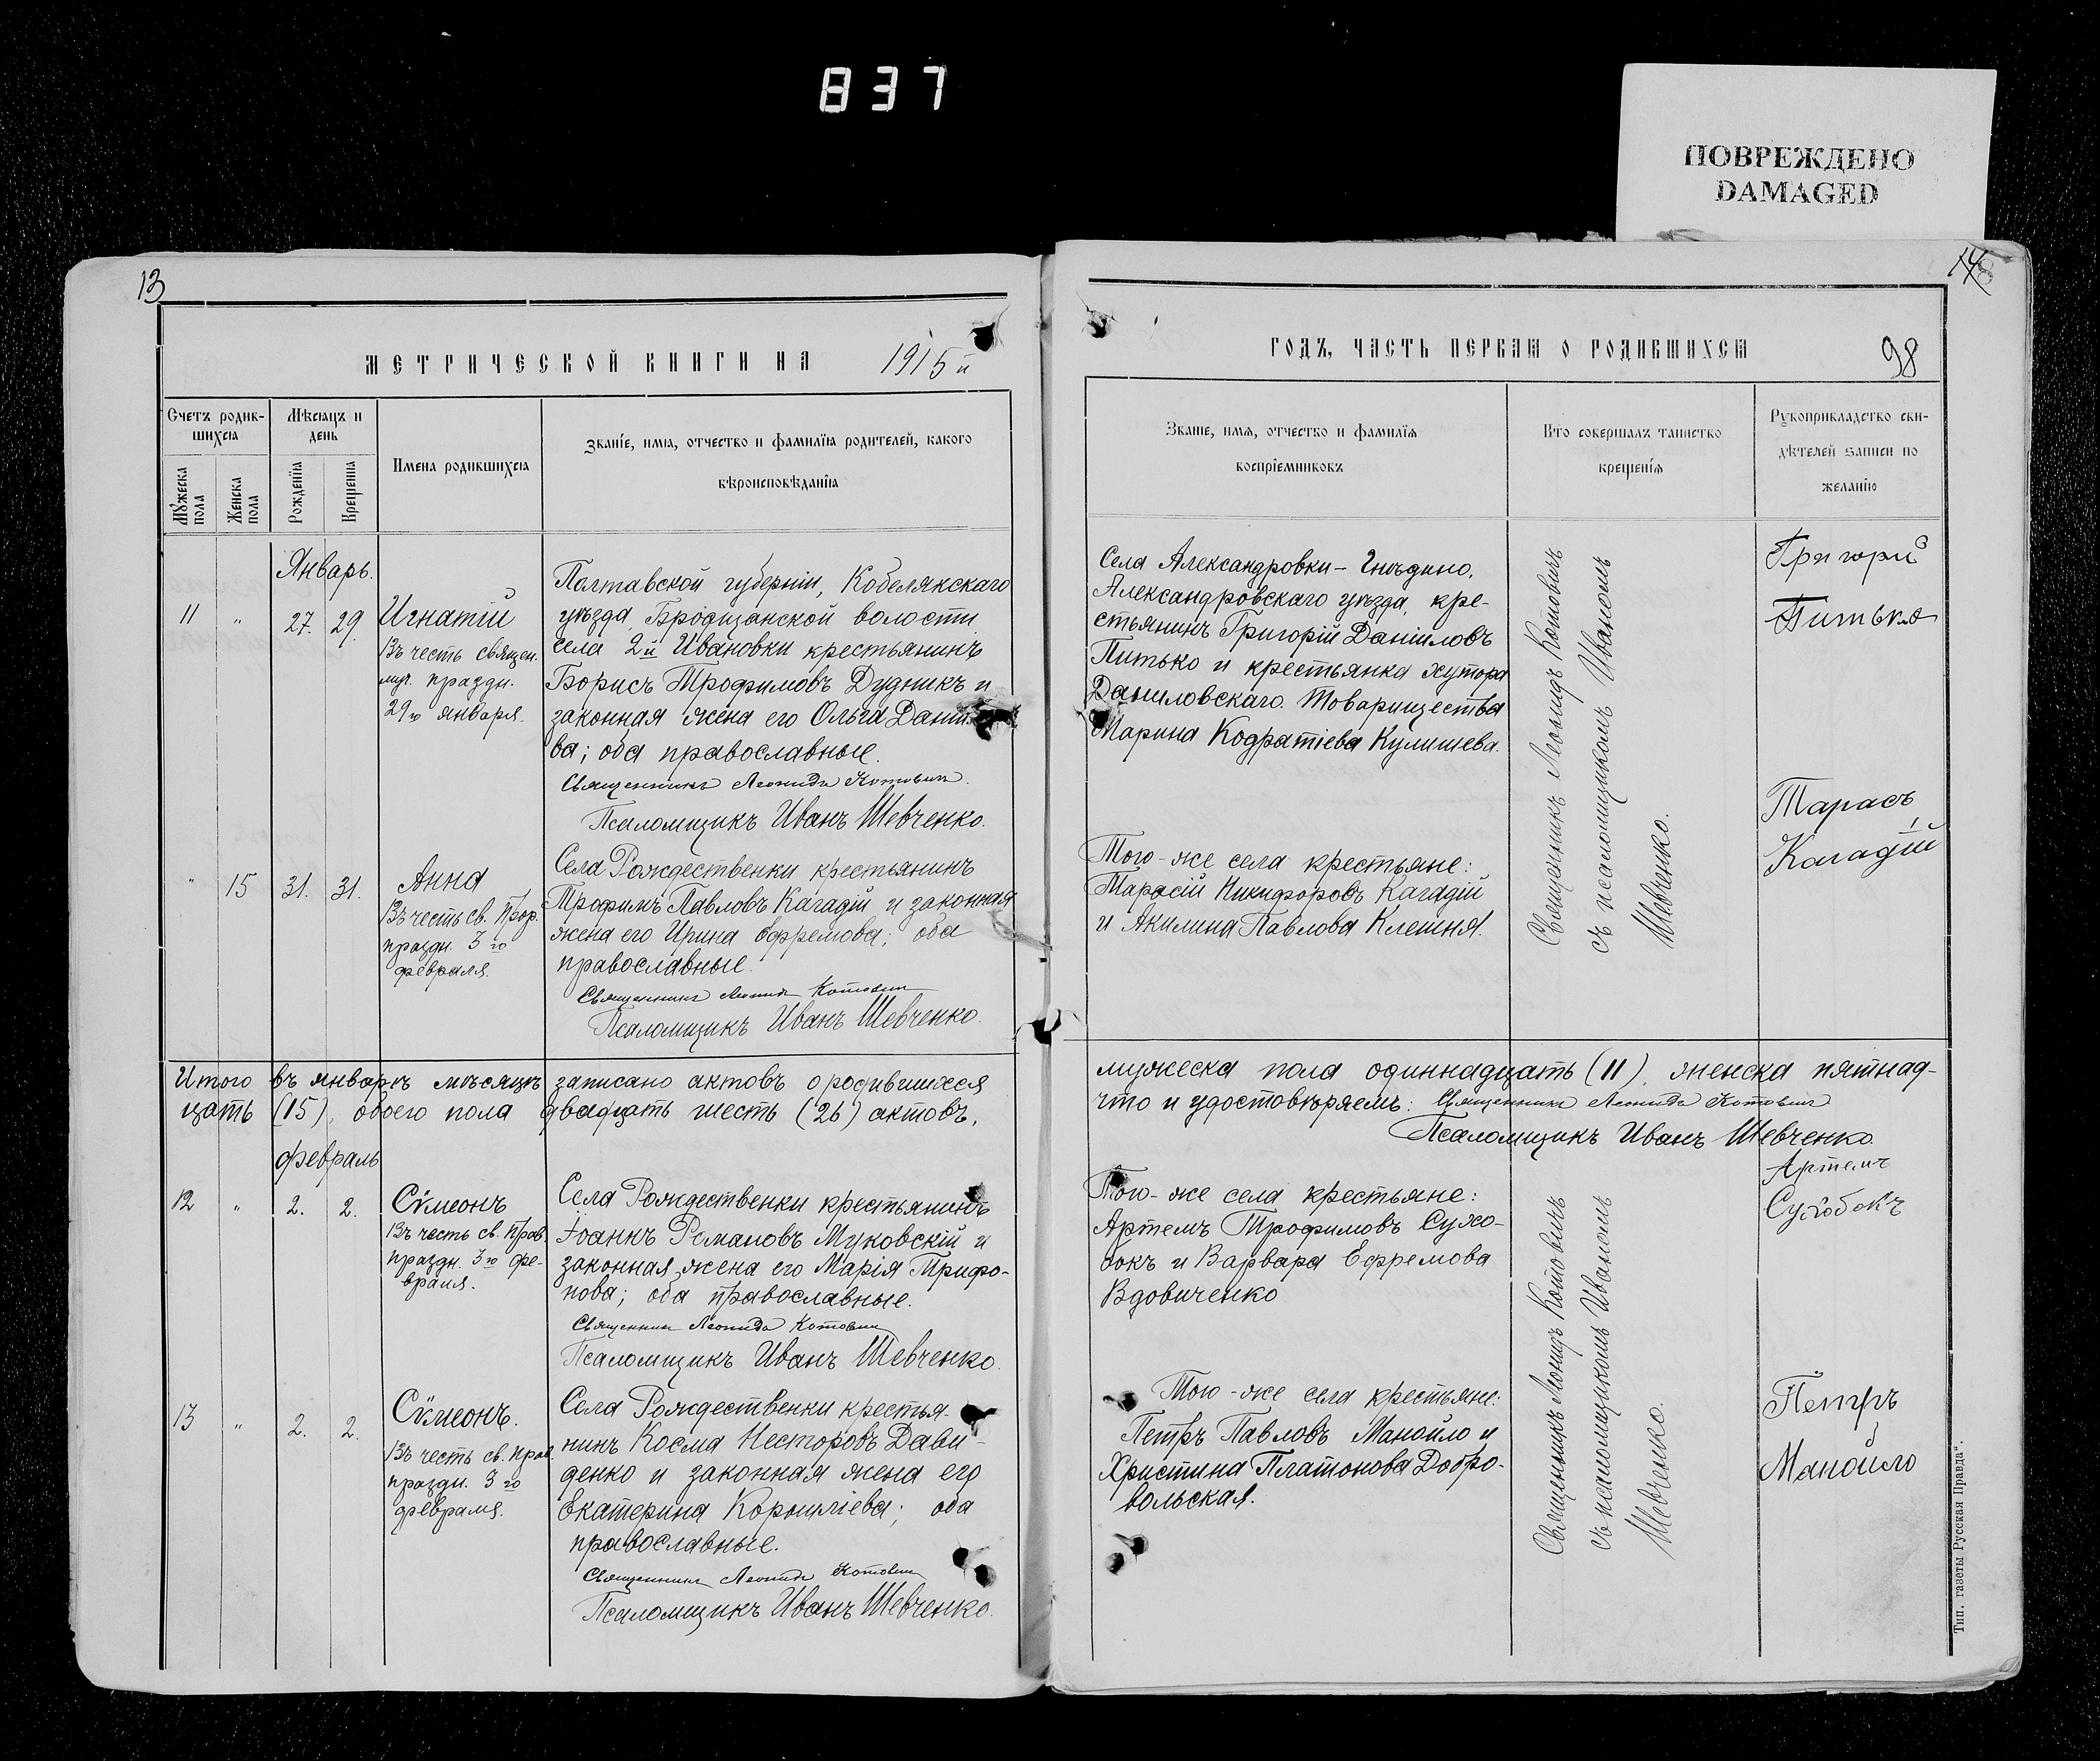 837
ПОВРЕЖДЕНО
DAMAGED
13
МЕТРИЧЕСКОЙ КНИГИ НА 1915 й
Счетъ родив-
шихся
Мѣсяцъ и
день
Мꙋжеска
пола
Женска
пола
Рожденїѧ
Крещенїѧ
Имена родившихсѧ
Званїе, имѧ, отчество и фамилїѧ родителей, какого
вѣроисповѣданїѧ
Январь.
11 " 27. 29.
Игнатій
Въ честь священ.
муч. праздн.
29го января.
Полтавской губерніи, Кобелякскаго
уѣзда, Бродщанской волости
села 2й Ивановки крестьянинъ
Борисъ Трофимовъ Дудникъ и
законная жена его Ольга
ва; оба православные.
Священникъ Леонидъ Котовичъ.
Псаломщикъ Иванъ Шевченко.
" 15 31. 31.
Анна
Въ честь св. Прор.
праздн. 3го
февраля.
Села Рождественки крестьянинъ
Трофимъ Павловъ Кагадій и законная
жена его Ирина Ефремова; оба
православные.
Священникъ Леонидъ Котовичъ
Псаломщикъ Иванъ Шевченко.
Итого въ январѣ мѣсяцѣ записано актовъ о родившихся
цать (15), обоего пола двадцать шесть (26) актовъ,
февраль
12 " 2. 2.
Сѵмеонъ
Въ честь св. Прав.
праздн. 3го фе-
враля.
Села Рождественки крестьянинъ
Іоаннъ Романовъ Муковскій и
законная жена его Марія Трифо-
нова; оба православные.
Священникъ Леонидъ Котовичъ
Псаломщикъ Иванъ Шевченко.
13 " 2. 2.
Сѵмеонъ.
Въ честь св. прав.
праздн. 3го
февраля.
Села Рождественки крестья-
нинъ Косма Несторовъ Дави-
денко и законная жена его
Екатерина Корниліева; оба
православные.
Священникъ Леонидъ Котовичъ
Псаломщикъ Иванъ Шевченко.
14
98
ГОДЪ, ЧАСТЬ ПЕРВАѦ О РОДИВШИХСѦ
Званїе, имѧ, отчество и фамилїѧ
воспрїемниковъ
Кто совершалъ таинство
крещенїѧ
Рꙋкоприкладство сви-
дѣтелей записи по
желанїю
Села Александровки-Гнѣдино,
Александровскаго уѣзда, кре-
стьянинъ Григорій Даніиловъ
Питько и крестьянка хутора
Даниловскаго Товарищества
Марина Кодратіева Кулишева.
Священникъ Леонидъ Котовичъ
съ псаломщикомъ Иваномъ
Шевченко.
Григорій
Питько
Того-же села крестьяне:
Тарасій Никифоровъ Кагадій
и Акилина Павлова Клешня.
Тарасъ
Кагадій
мужеска пола одиннадцать (11), женска пятнад-
что и удостовѣряемъ: Священникъ Леонидъ Котовичъ
Псаломщикъ Иванъ Шевченко.
Того-же села крестьяне:
Артемъ Трофимовъ Сухо-
бокъ и Варвара Ефремова
Вдовиченко
Священникъ Леонидъ Котовичъ
съ псаломщикомъ Иваномъ
Шевченко.
Артемъ
Сухобокъ
Того-же села крестьяне:
Петръ Павловъ Манойло и
Христина Платонова Добро-
вольская.
Петръ
Манойло
Тип. газеты Русская Правда".